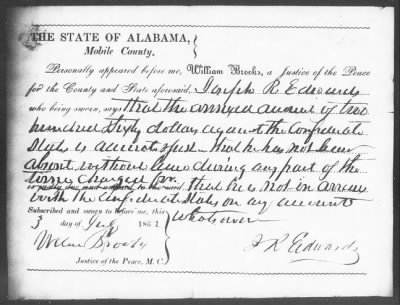 THE STATE OF ALABAMA,
Mobile County.
Personally appeared before me, William Brooks, a Justice of the Peace
for the County and State aforesaid, Joseph R. Edwards
who being sworn, says that the annexed account of two
hundred sixty dollars against the Confederate
States is accurate & just that he has not been
absent without leave during any part of the
time charged for that he is not in arrears
with the Confederate States on any account
whatsoever
Subscribed and sworn to before me, this
3 day of July 186
J R Edwards
Justice of the Peace, M. C.